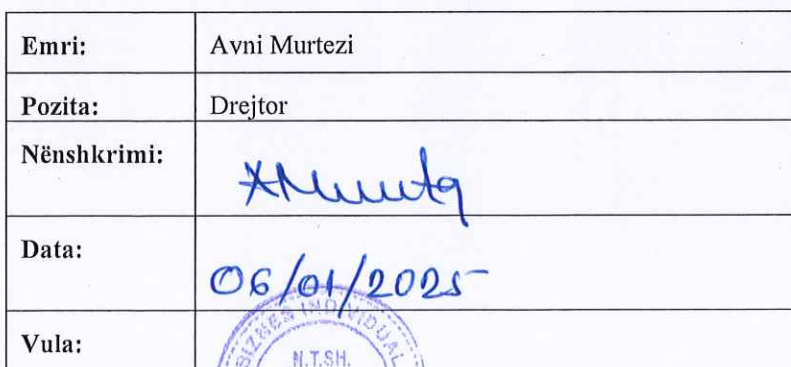 Emri: Avni Murtezi
Pozita: Drejtor
Nënshkrimi:
Data: 06/01/2025
Vula:
BIZNES INDIVIDUAL
N.T.SH.